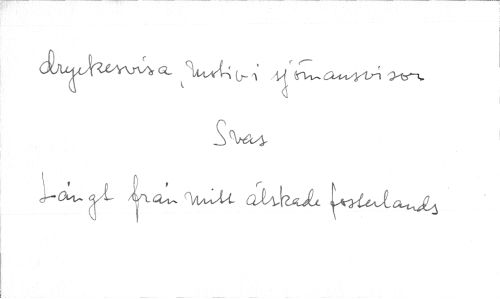 dryckesvisa, motiv i sjömansvisor
Svas
Långt från mitt älskade fosterlands